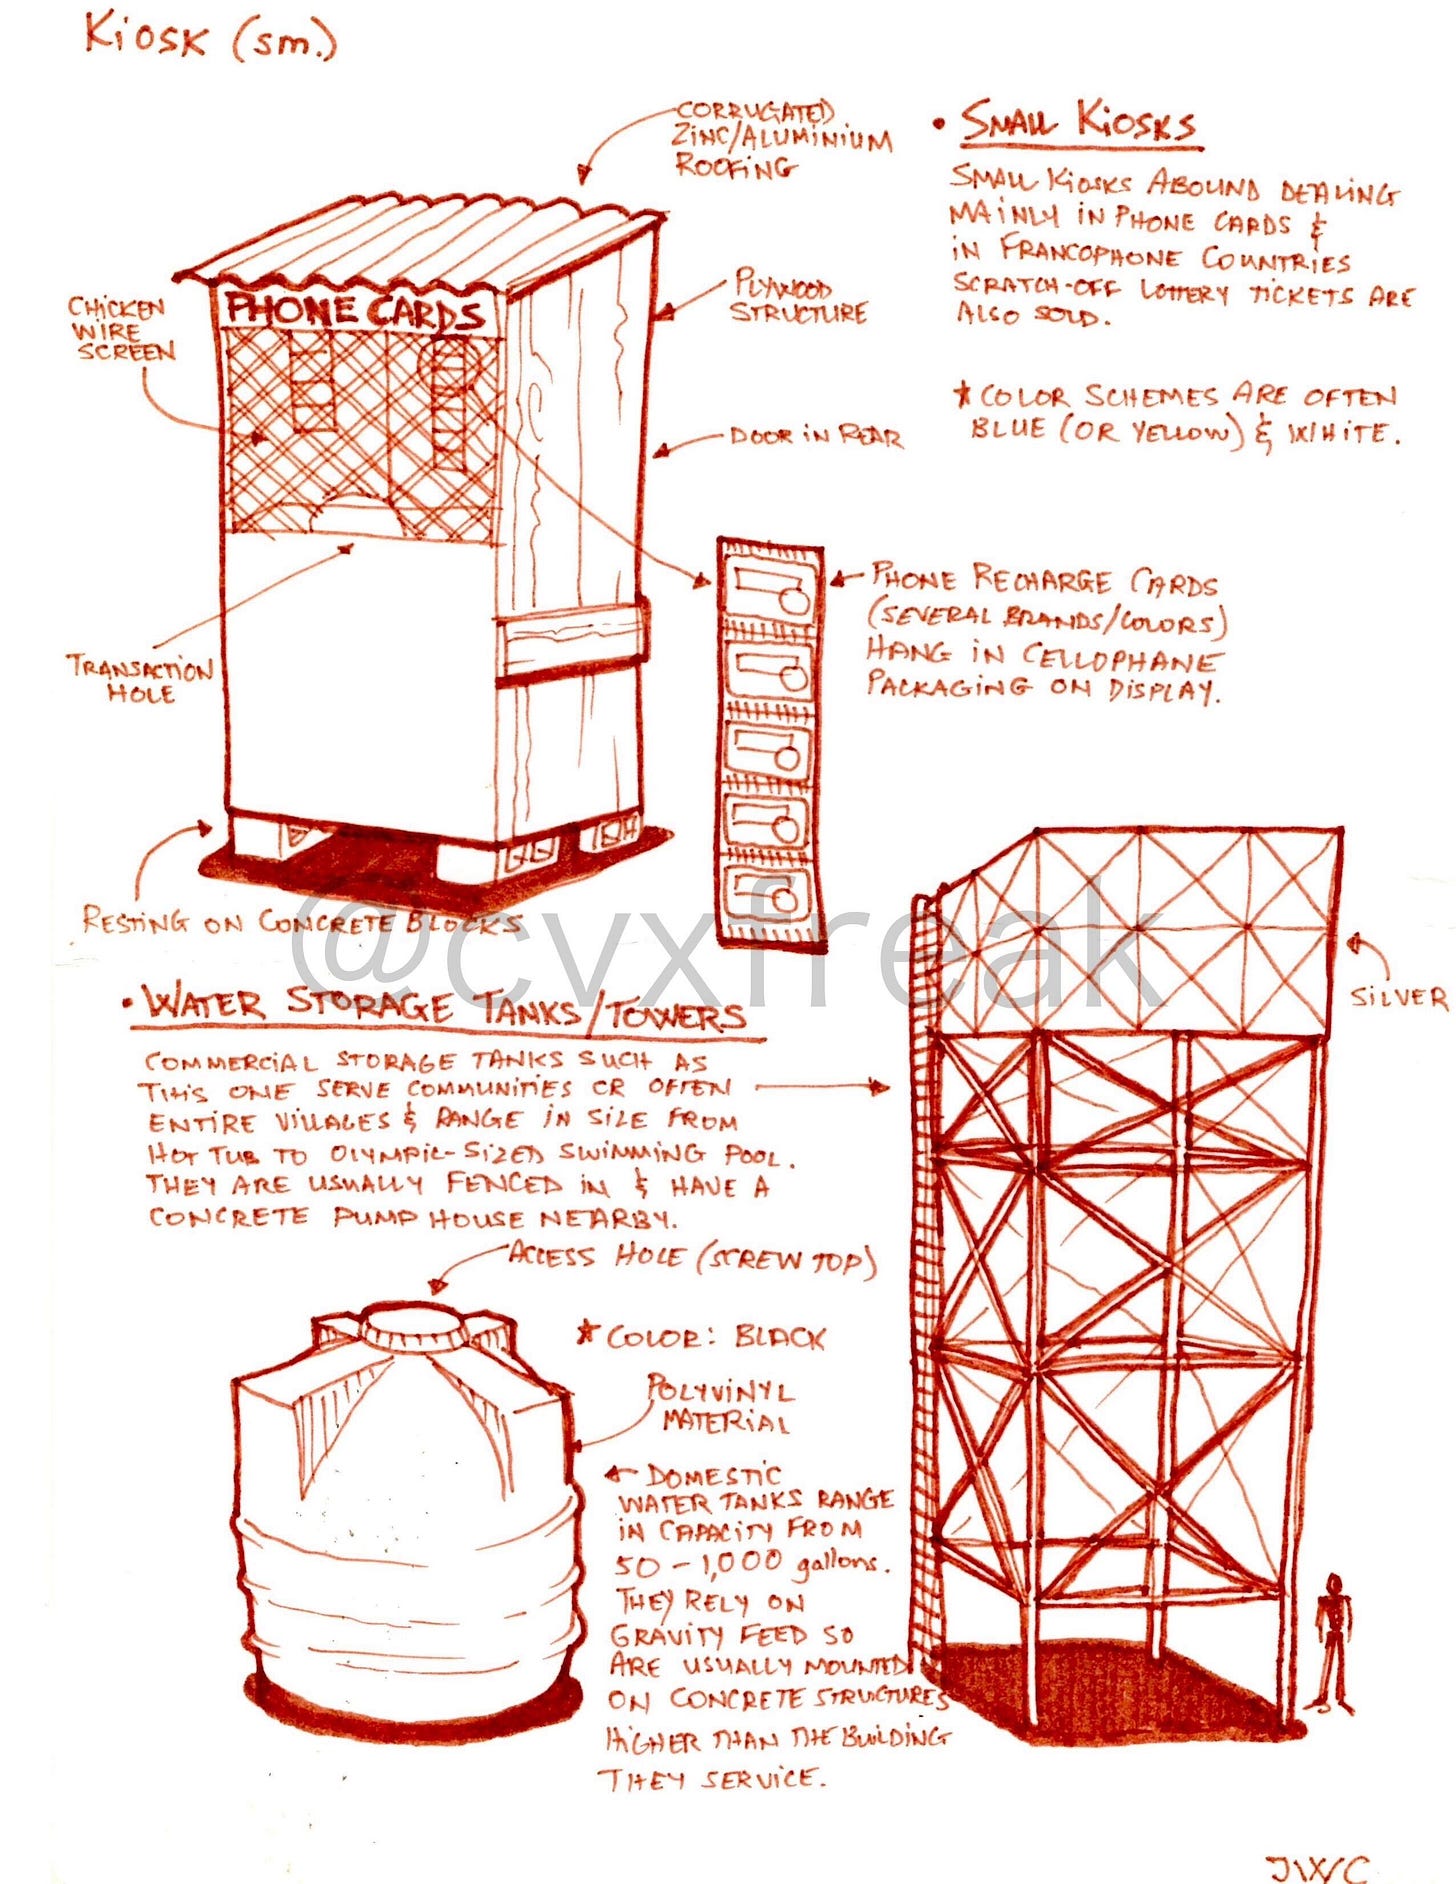 Kiosk (sm.)
CORRUGATED
ZINC/ALUMINIUM
ROOFING
CHICKEN
WIRE
SCREEN
PHONE CARDS
PLYWOOD
STRUCTURE
DOOR IN REAR
TRANSACTION
HOLE
RESTING ON CONCRETE BLOCKS
• SMALL KIOSKS
SMALL KIOSKS ABOUND DEALING
MAINLY IN PHONE CARDS &
IN FRANCOPHONE COUNTRIES
SCRATCH-OFF LOTTERY TICKETS ARE
ALSO SOLD.
* COLOR SCHEMES ARE OFTEN
BLUE (OR YELLOW) & WHITE.
PHONE RECHARGE CARDS
(SEVERAL BRANDS/COLORS)
HANG IN CELLOPHANE
PACKAGING ON DISPLAY.
@cvxfreak
• WATER STORAGE TANKS/TOWERS
COMMERCIAL STORAGE TANKS SUCH AS
THIS ONE SERVE COMMUNITIES OR OFTEN
ENTIRE VILLAGES & RANGE IN SIZE FROM
HOT TUB TO OLYMPIC-SIZED SWIMMING POOL.
THEY ARE USUALLY FENCED IN & HAVE A
CONCRETE PUMP HOUSE NEARBY.
SILVER
ACCESS HOLE (SCREW TOP)
* COLOR: BLACK
POLYVINYL
MATERIAL
DOMESTIC
WATER TANKS RANGE
IN CAPACITY FROM
50 - 1,000 gallons.
THEY RELY ON
GRAVITY FEED SO
ARE USUALLY MOUNTED
ON CONCRETE STRUCTURES
HIGHER THAN THE BUILDING
THEY SERVICE.
JWC